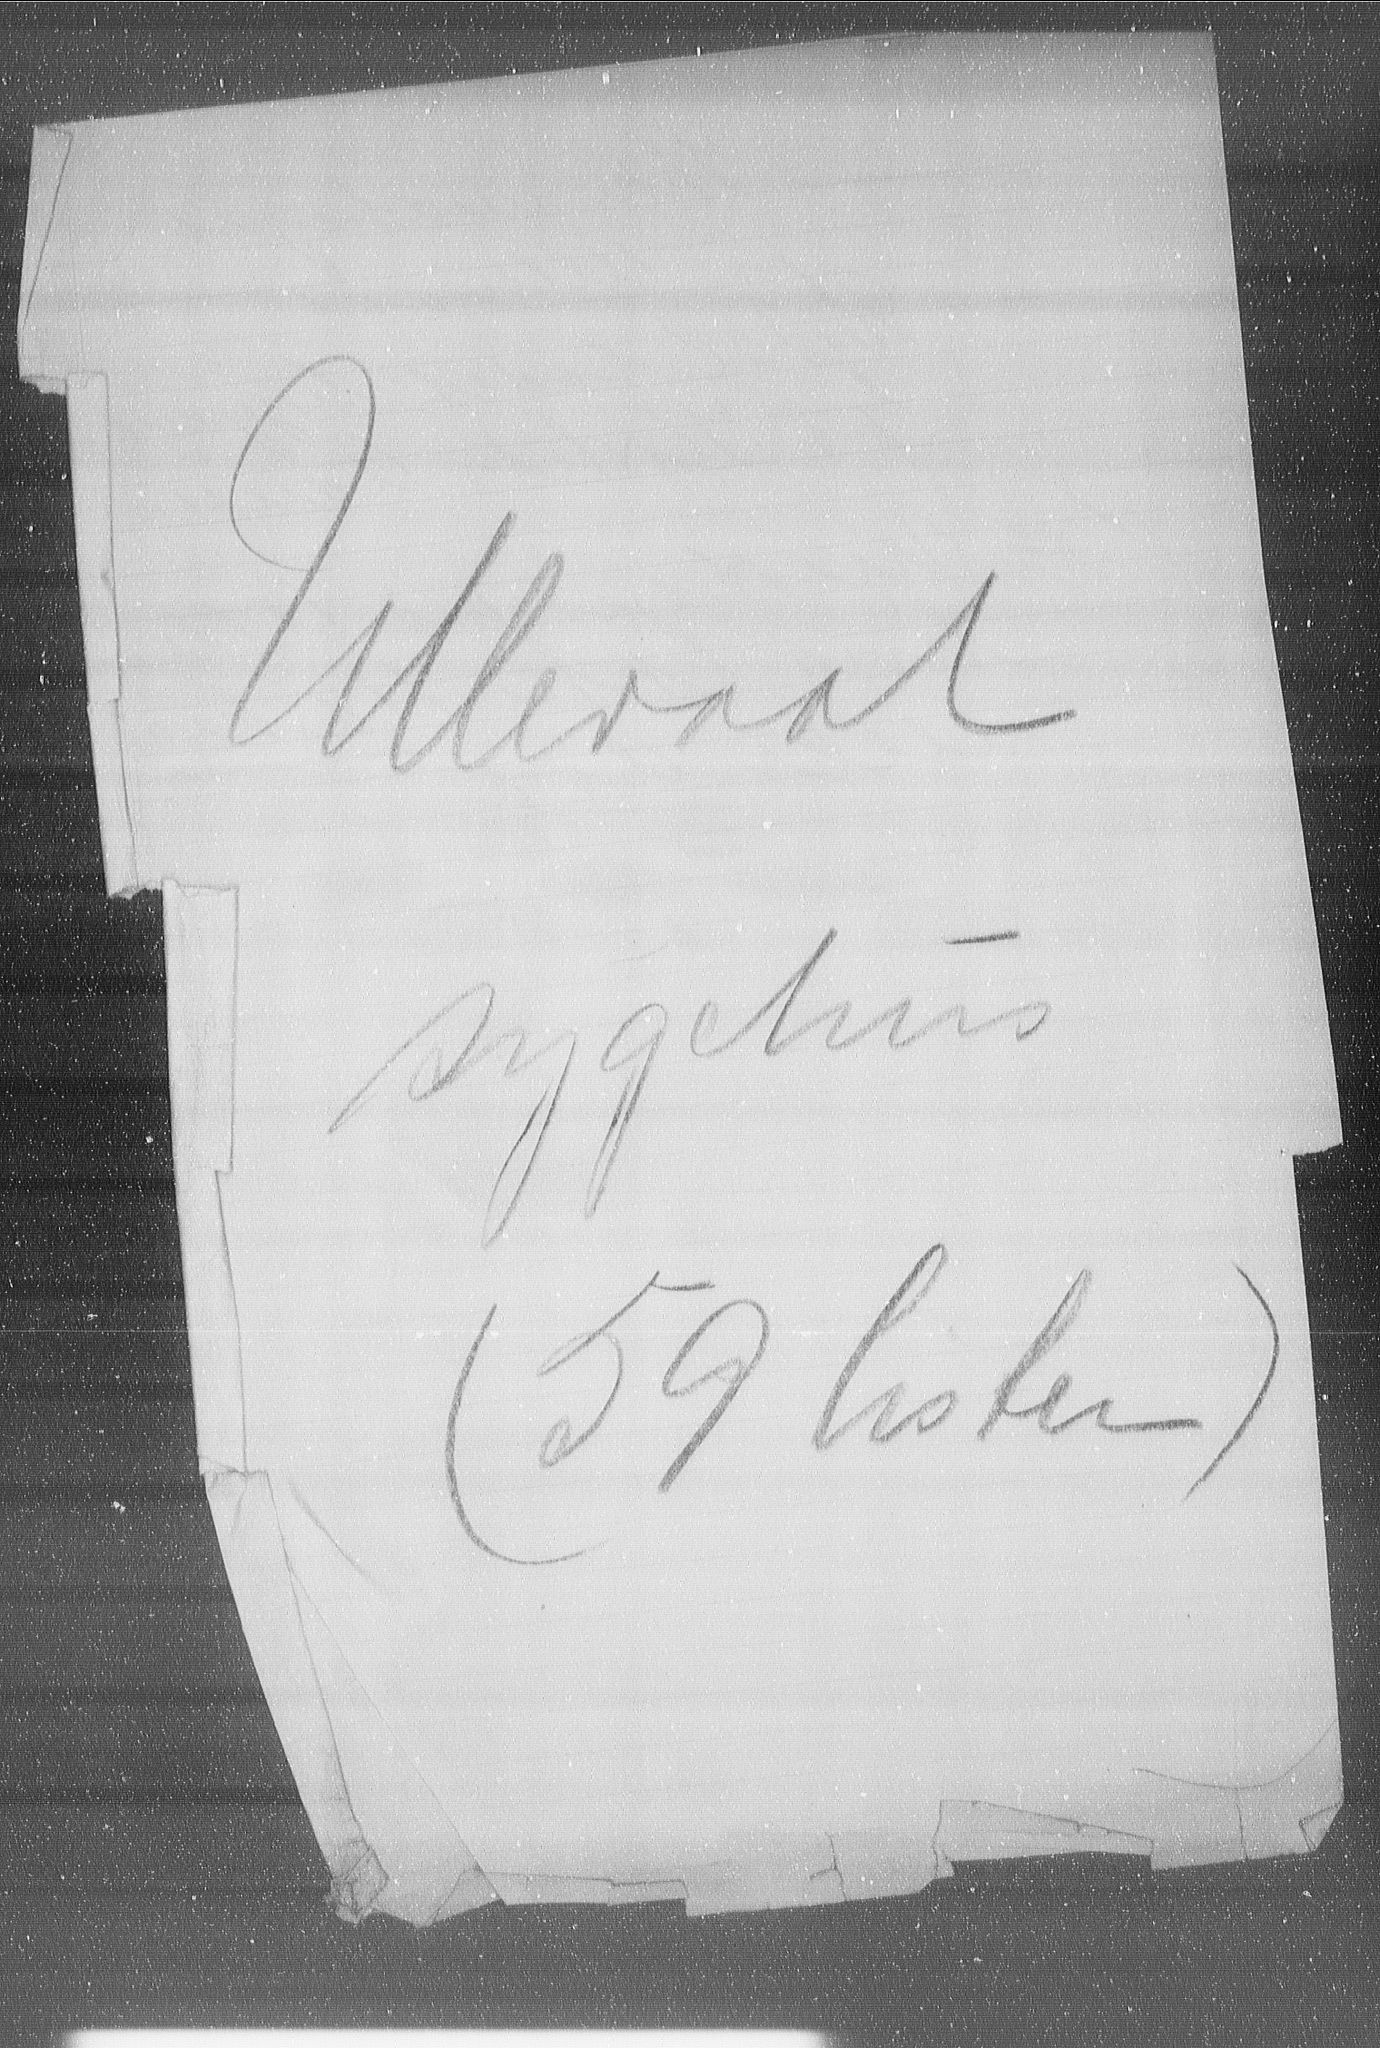 Ullevaal
sygehus
(59 lister)